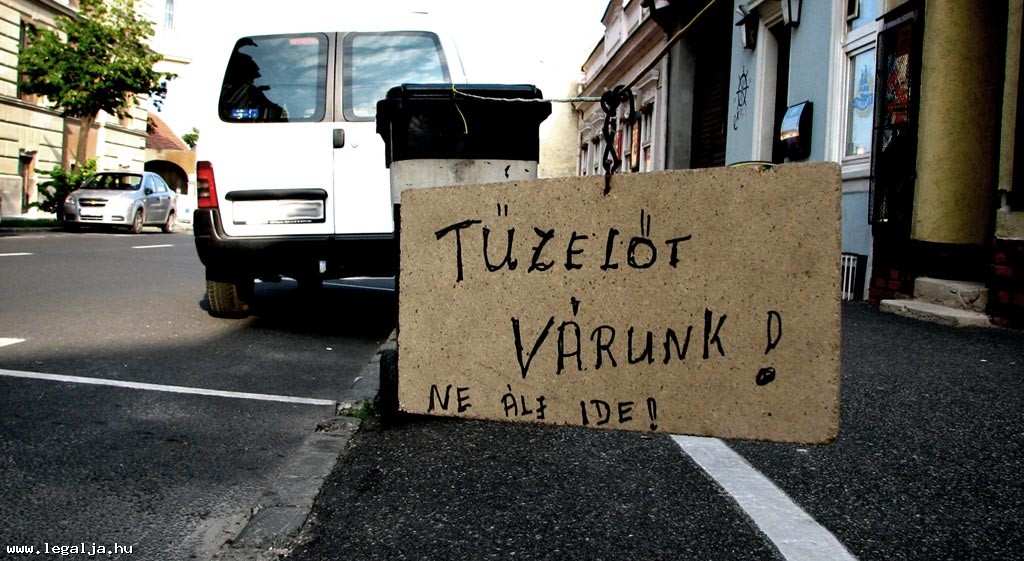 TÜZELŐT
VÁRUNK!
NE ÁLJ IDE!
www.legalja.hu